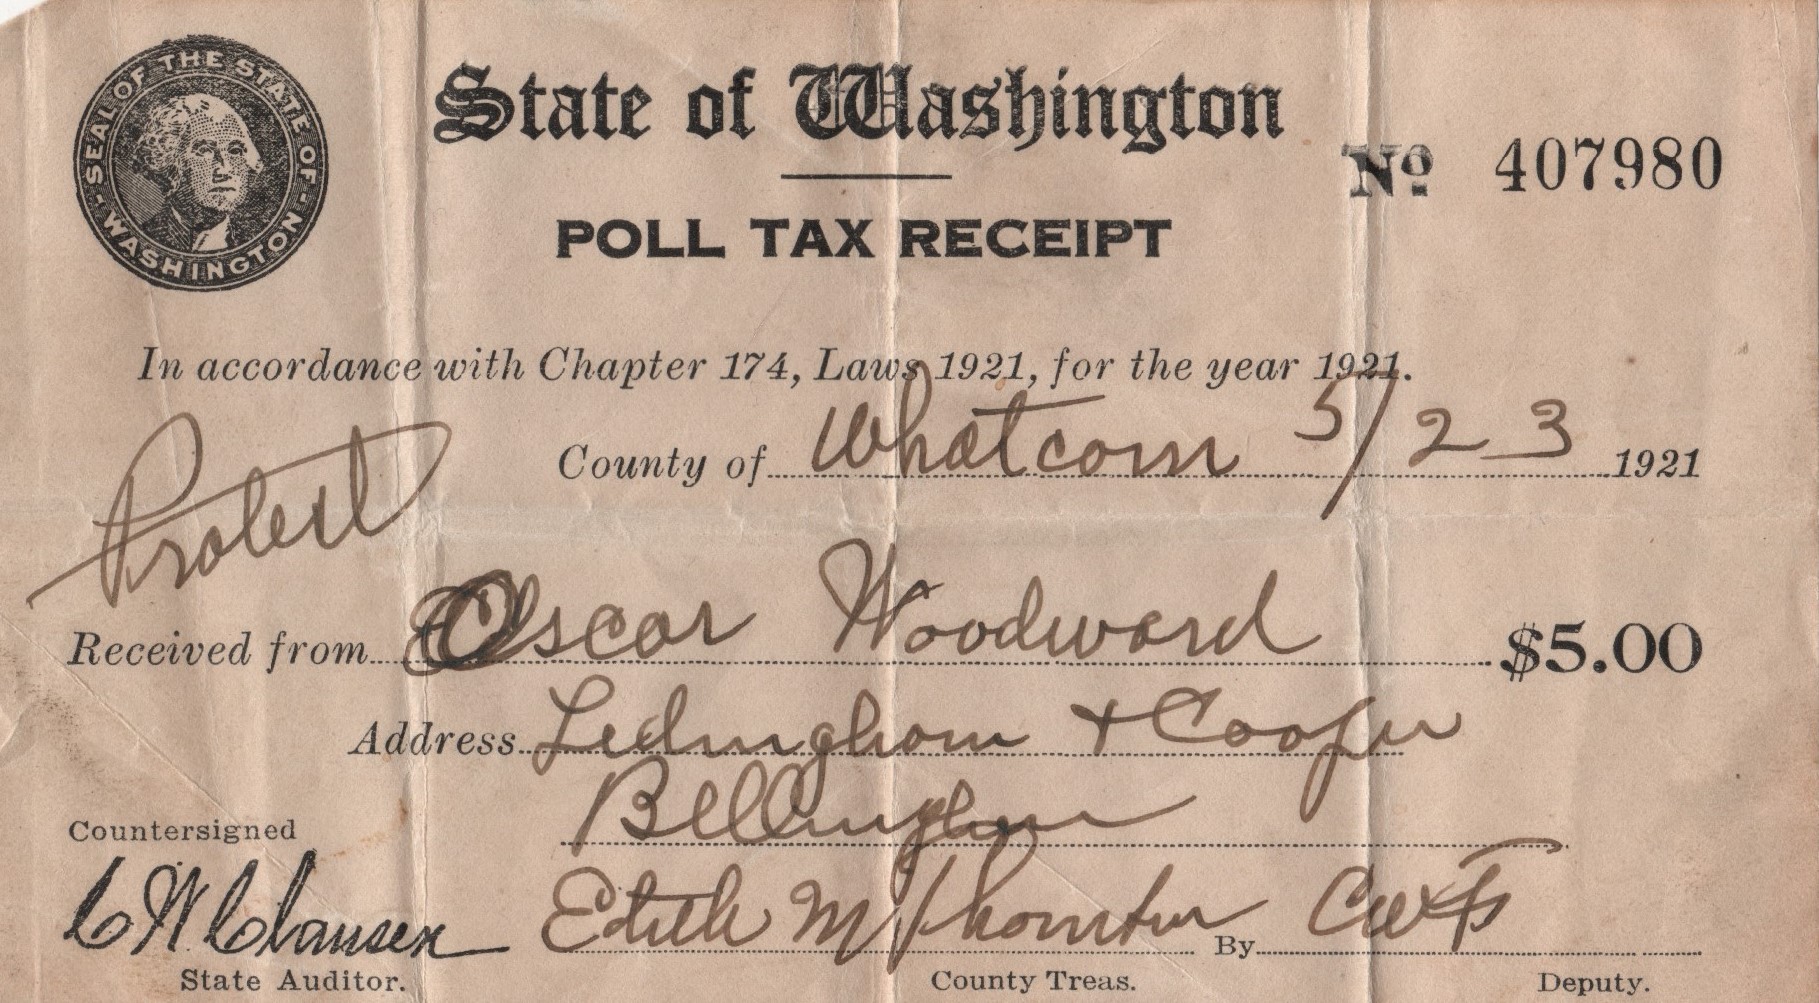 SEAL OF THE STATE OF WASHINGTON
State of Washington
No 407980
POLL TAX RECEIPT
In accordance with Chapter 174, Laws 1921, for the year 1921.
County of Whatcom 5/23 1921
Protest
Received from Oscar Woodward $5.00
Address Ledingham + Cooper
Bellingham
Countersigned
C W Clausen Edith M Thornton By
State Auditor. County Treas. Deputy.